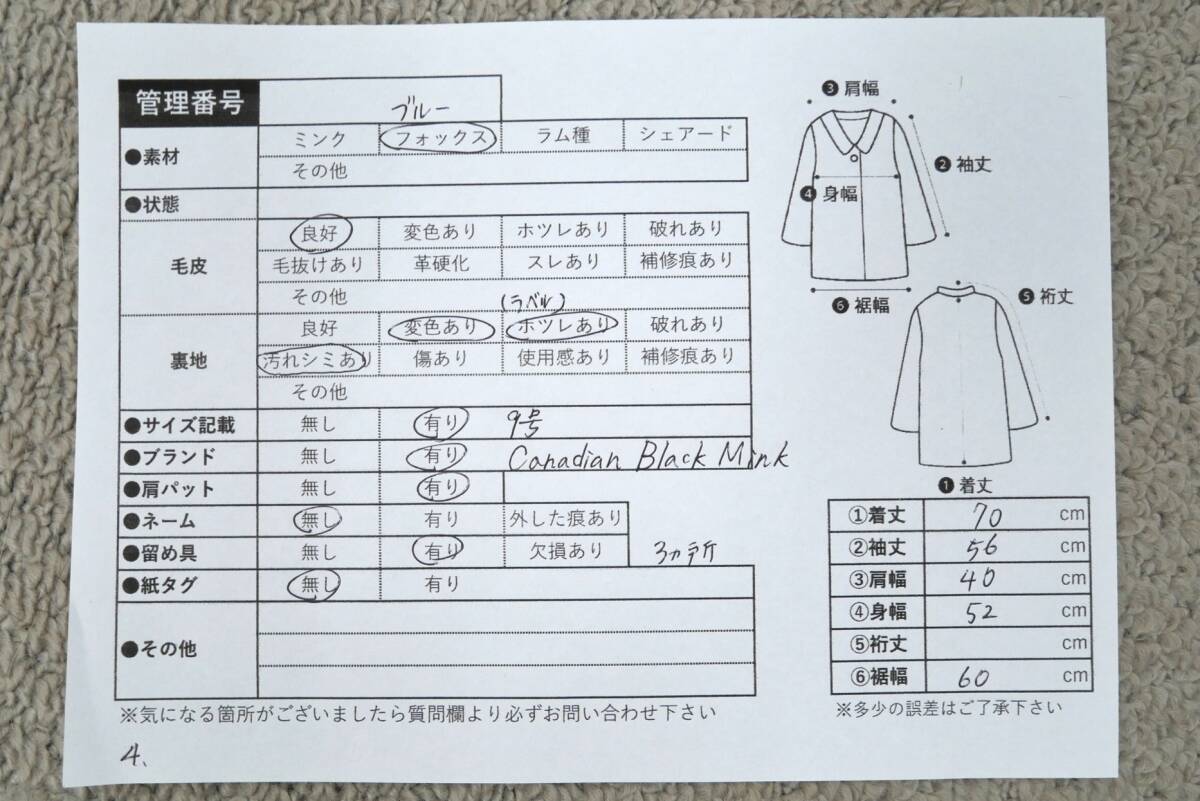 管理番号
ブルー
●素材 ミンク フォックス ラム種 シェアード
その他
●状態
毛皮 良好 変色あり ホツレあり 破れあり
毛抜けあり 革硬化 スレあり 補修痕あり
その他
(ラベル)
裏地 良好 変色あり ホツレあり 破れあり
汚れシミあり 傷あり 使用感あり 補修痕あり
その他
●サイズ記載 無し 有り 9号
●ブランド 無し 有り Canadian Black Mink
●肩パット 無し 有り
●ネーム 無し 有り 外した痕あり
●留め具 無し 有り 欠損あり 3ヵ所
●紙タグ 無し 有り
●その他
※気になる箇所がございましたら質問欄より必ずお問い合わせ下さい
4、
❸肩幅
❷袖丈
❹身幅
❻裾幅
❺裄丈
❶着丈
①着丈 70 cm
②袖丈 56 cm
③肩幅 40 cm
④身幅 52 cm
⑤裄丈 cm
⑥裾幅 60 cm
※多少の誤差はご了承下さい